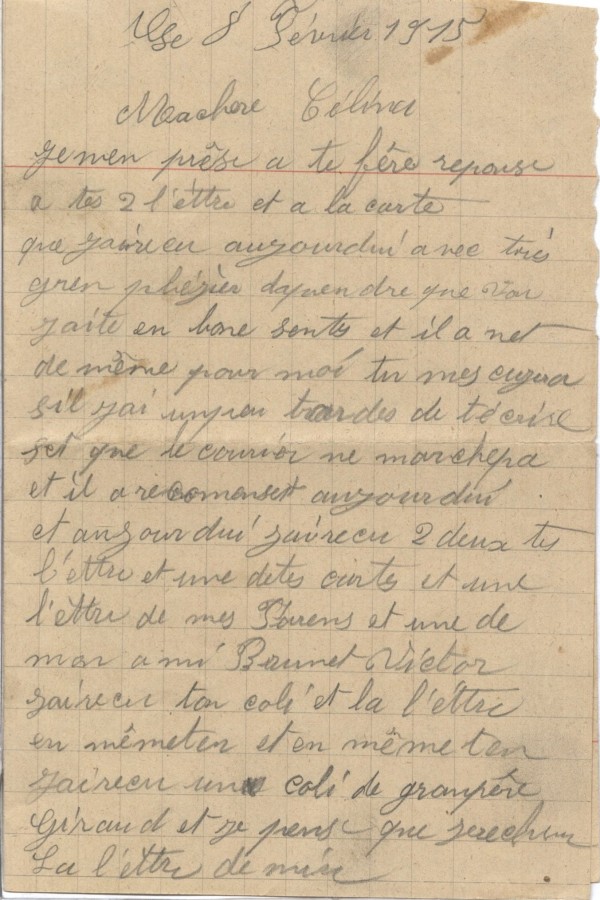 Le 8 Février 1915
Machere Célina
jemen prèse a te fère reponse
a tes 2 l'èttre et a la carte
que jairecu aujourdui avec très
gren plézier daprendre que vou
zaite en bone sente et il a net
de même pour moi tu mescuzera
s'il jai unpeu tardes de técrire
set que le courier ne marchepa
et il a recomenset aujourdui
et aujourdui jairecu 2 deux tes
l'èttre et une detes cartes et une
l'èttre de mes Parens et une de
mon ami Brunet Victor
jairecu ton coli et la l'èttre
en mêmeten et en même ten
jairecu un coli de granpère
Giraud et je pense que
La l'èttre de